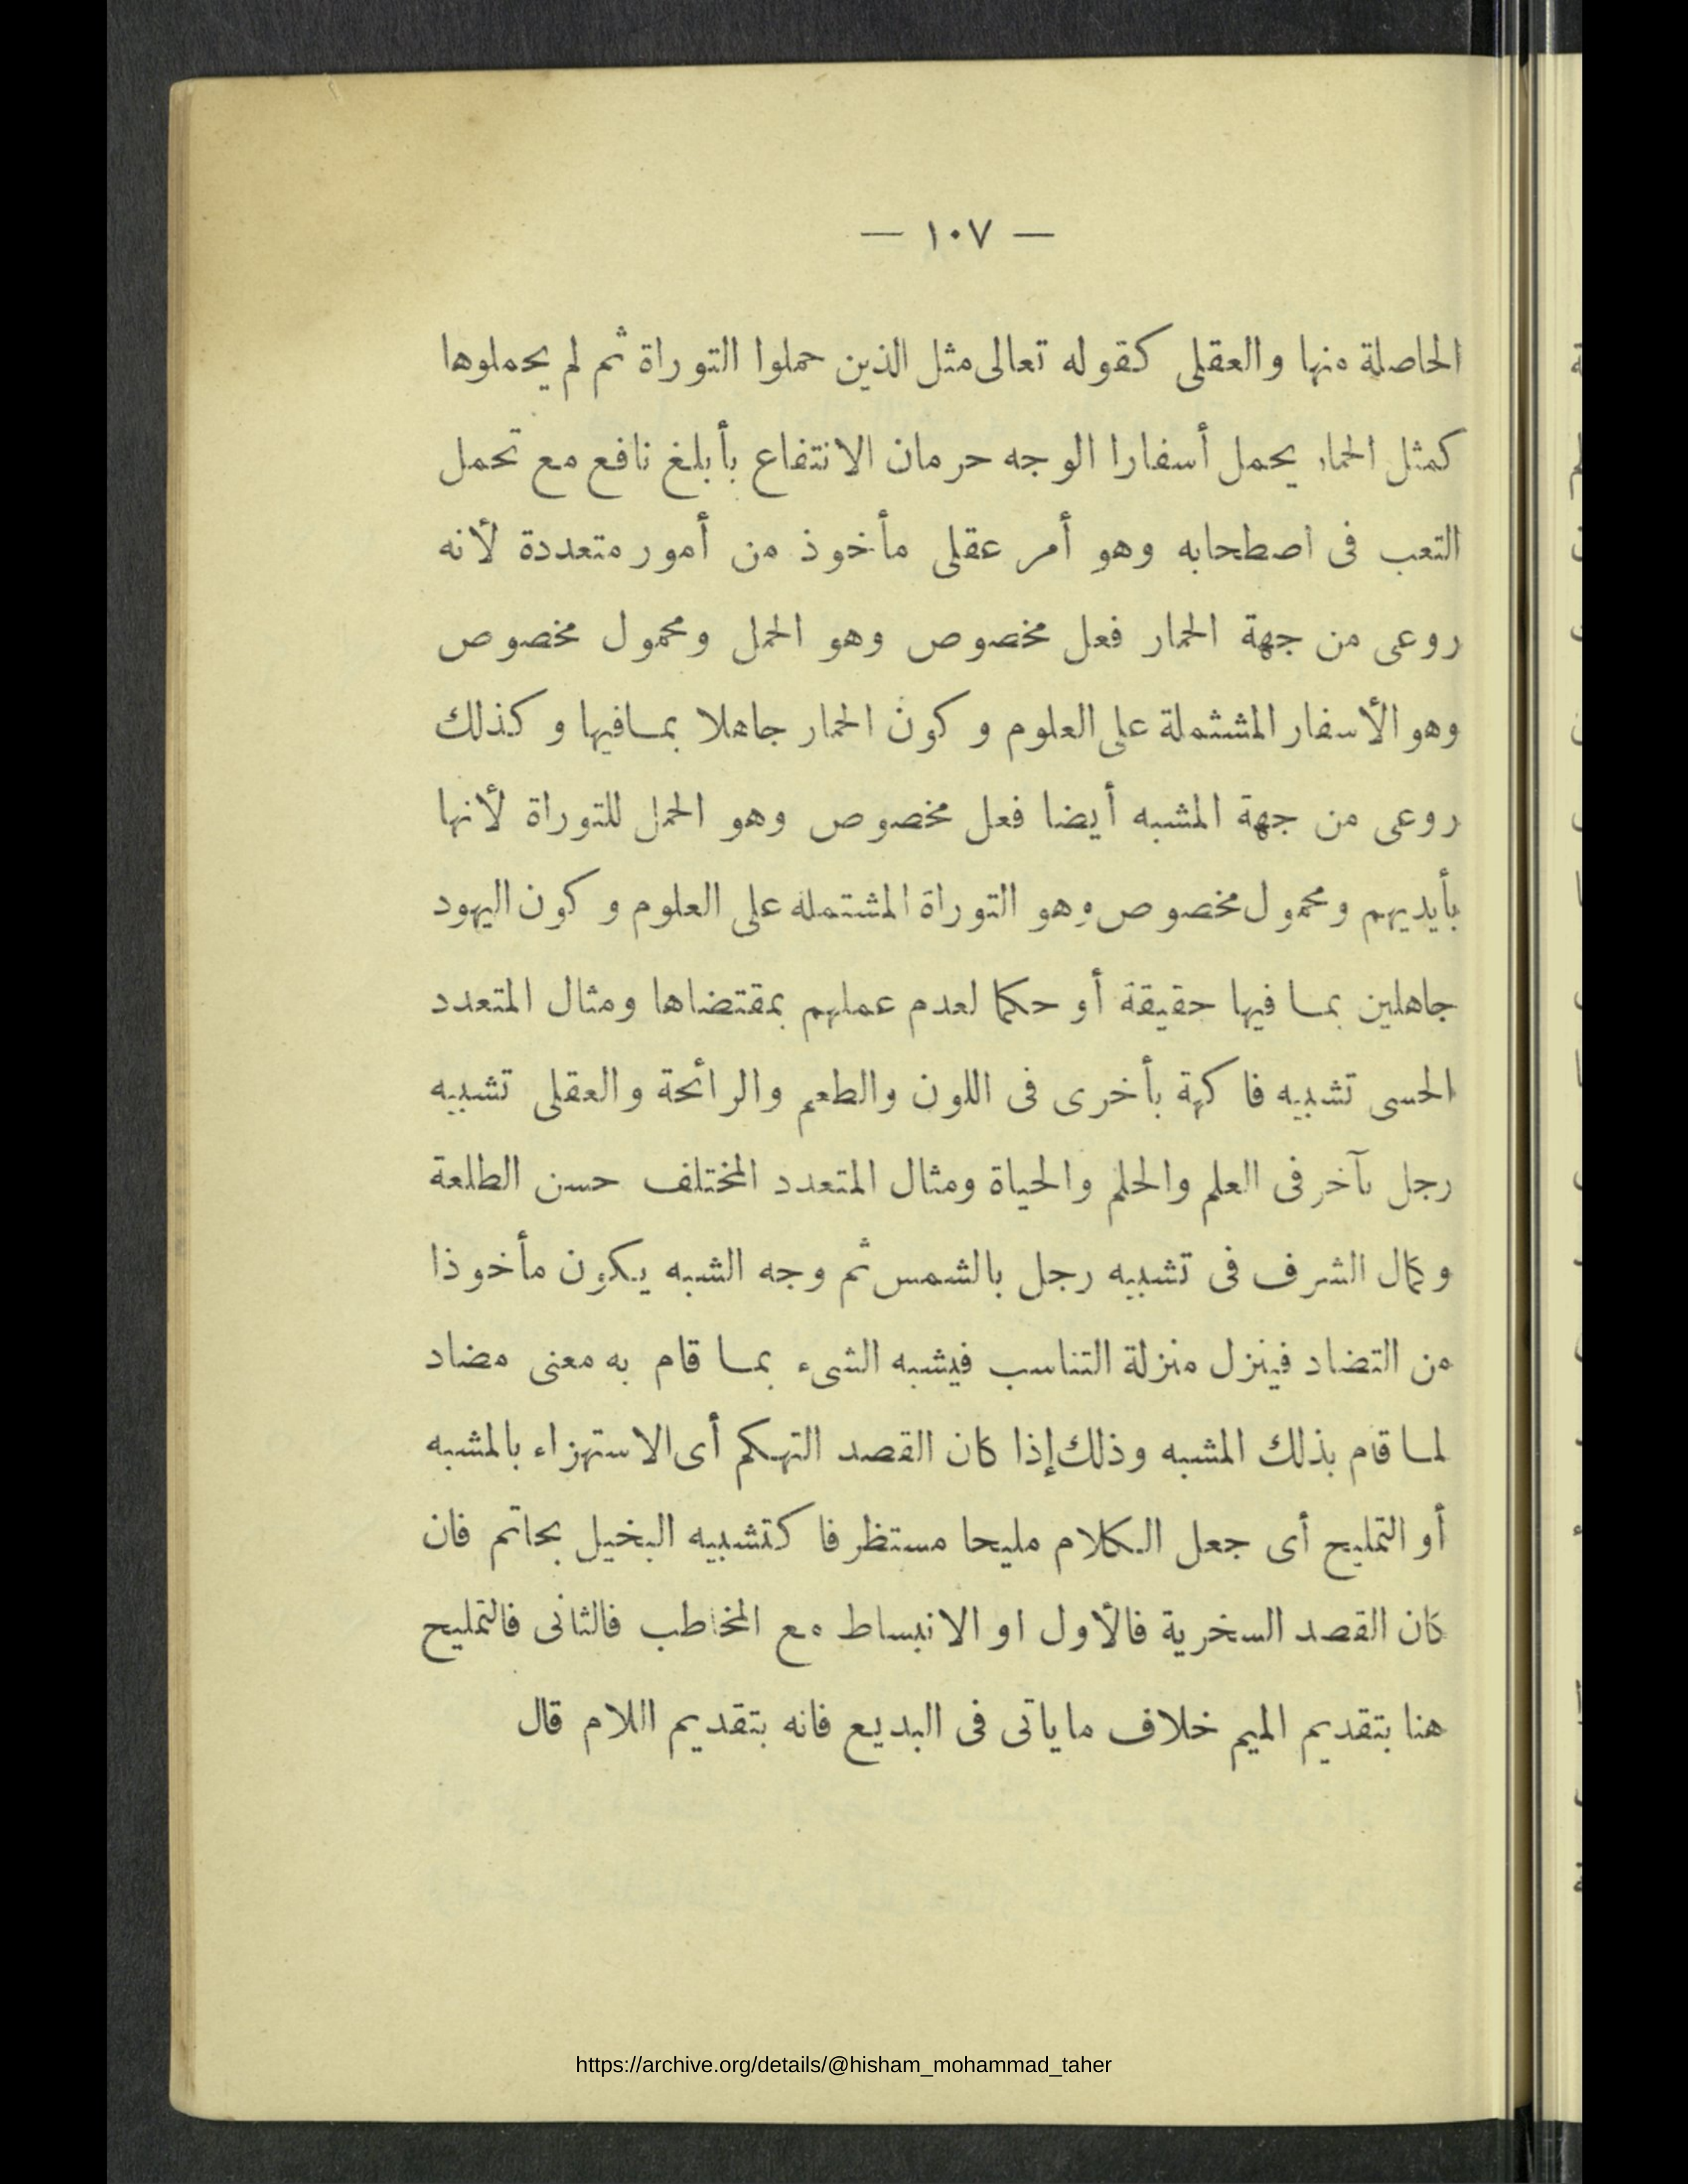 — ١٠٧ —
الحاصلة منها والعقلى كقوله تعالى مثل الذين حملوا التوراة ثم لم يحملوها
كمثل الحمار يحمل أسفارا الوجه حرمان الانتفاع بأبلغ نافع مع تحمل
التعب فى اصطحابه وهو أمر عقلى مأخوذ من أمور متعددة لأنه
روعى من جهة الحمار فعل مخصوص وهو الحمل ومحمول مخصوص
وهو الأسفار المشتملة على العلوم وكون الحمار جاهلا بمافيها وكذلك
روعى من جهة المشبه أيضا فعل مخصوص وهو الحمل للتوراة لأنها
بأيديهم ومحمول مخصوص وهو التوراة المشتملة على العلوم وكون اليهود
جاهلين بما فيها حقيقة أو حكما لعدم عملهم بمقتضاها ومثال المتعدد
الحسى تشبيه فاكهة بأخرى فى اللون والطعم والرائحة والعقلى تشبيه
رجل بآخر فى العلم والحلم والحياة ومثال المتعدد المختلف حسن الطلعة
وكمال الشرف فى تشبيه رجل بالشمس ثم وجه الشبه يكون مأخوذا
من التضاد فينزل منزلة التناسب فيشبه الشىء بما قام به معنى مضاد
لما قام بذلك المشبه وذلك إذا كان القصد التهكم أى الاستهزاء بالمشبه
أو التمليح أى جعل الكلام مليحا مستظرفا كتشبيه البخيل بحاتم فان
كان القصد السخرية فالأول او الانبساط مع المخاطب فالثانى فالتمليح
هنا بتقديم الميم خلاف ماياتى فى البديع فانه بتقديم اللام قال
https://archive.org/details/@hisham_mohammad_taher